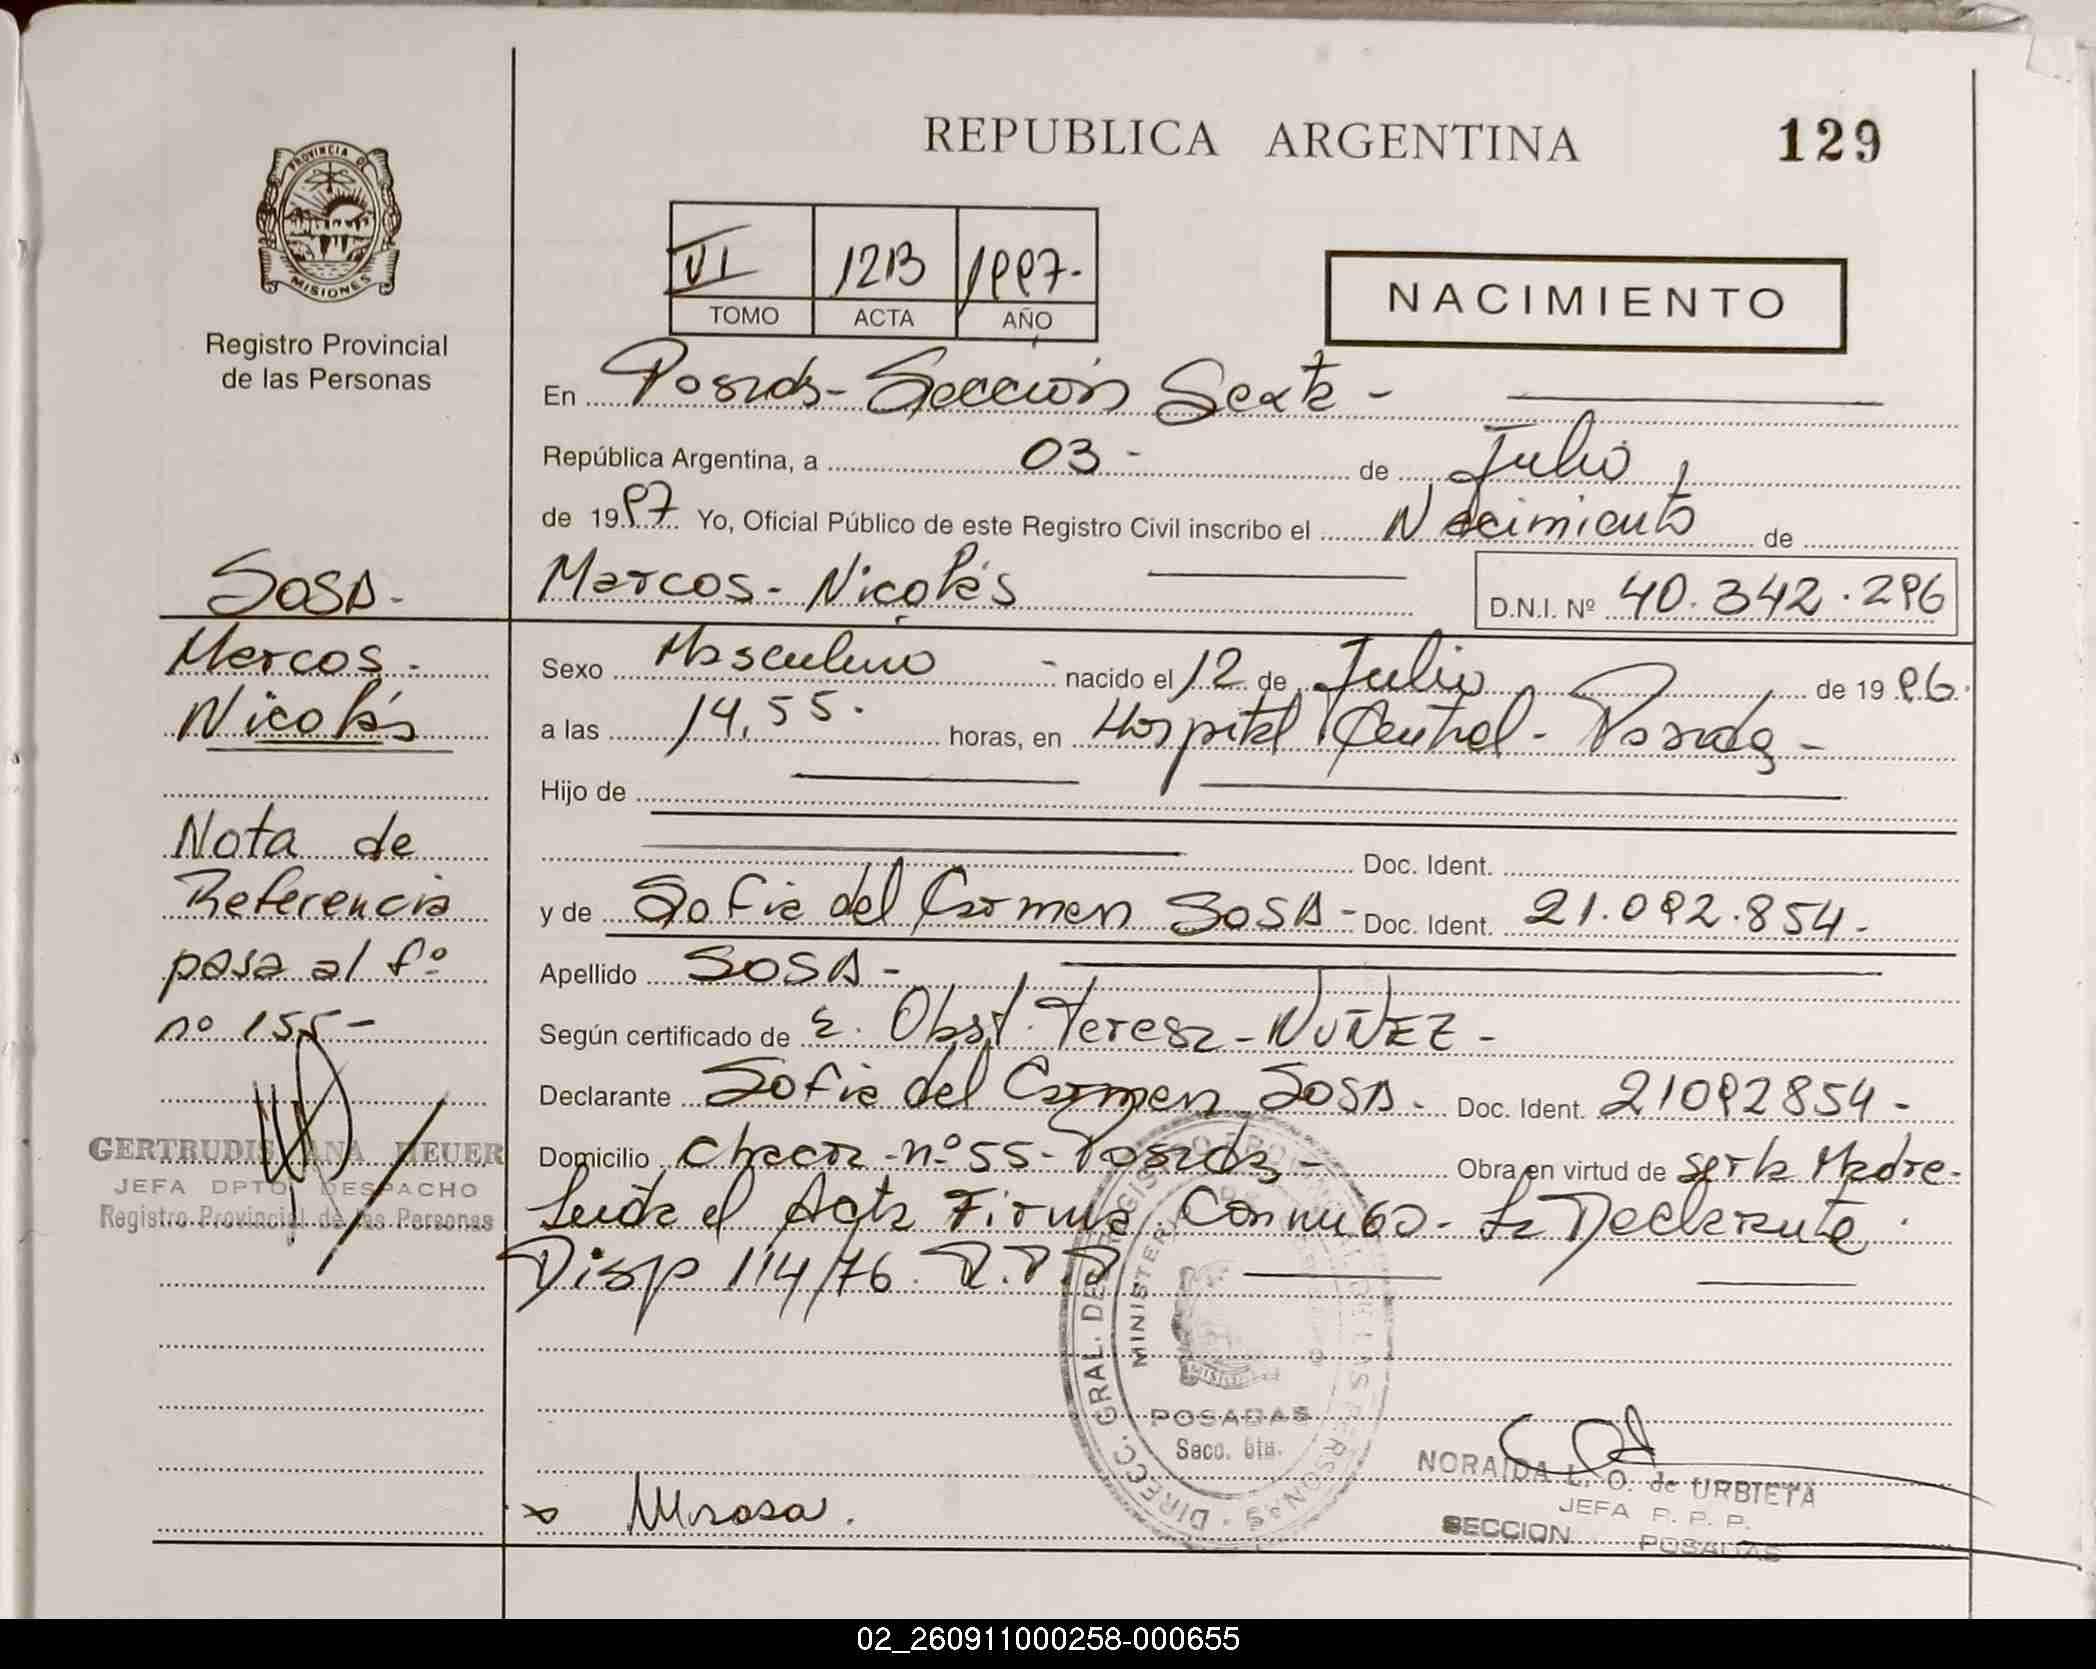 REPUBLICA ARGENTINA
129
PROVINCIA DE
MISIONES
Registro Provincial
de las Personas
VI 1213 1997-
TOMO ACTA AÑO
NACIMIENTO
En Posadas - Sección Sexta -
República Argentina, a 03 - de Julio
de 1997 Yo, Oficial Público de este Registro Civil inscribo el Nacimiento de
Marcos - Nicolás D.N.I. Nº 40.342.296
Sexo Masculino - nacido el 12 de Julio de 1996.
a las 14,55. horas, en Hospital Central - Posadas -
Hijo de
Doc. Ident.
y de Sofia del Carmen SOSA - Doc. Ident. 21.092.854-
Apellido SOSA -
Según certificado de Obst. Teresa - NUÑEZ -
Declarante Sofia del Carmen SOSA - Doc. Ident. 21092854 -
Domicilio Chacra - nº 55 - Posadas - Obra en virtud de ser la Madre -
Leída el Acta Firma Conmigo - La Declarante.
Disp 114/76. R.P.P.
SOSA -
Marcos -
Nicolás
Nota de
Referencia
pasa al fº
nº 155 -
GERTRUDIS ANA HEUER
JEFA DPTO DESPACHO
Registro Provincial de las Personas
POSADAS
Secc. 6ta.
NORAIDA L. O. de URBIETA
JEFA R. P. P.
SECCION POSADAS
02_260911000258-000655